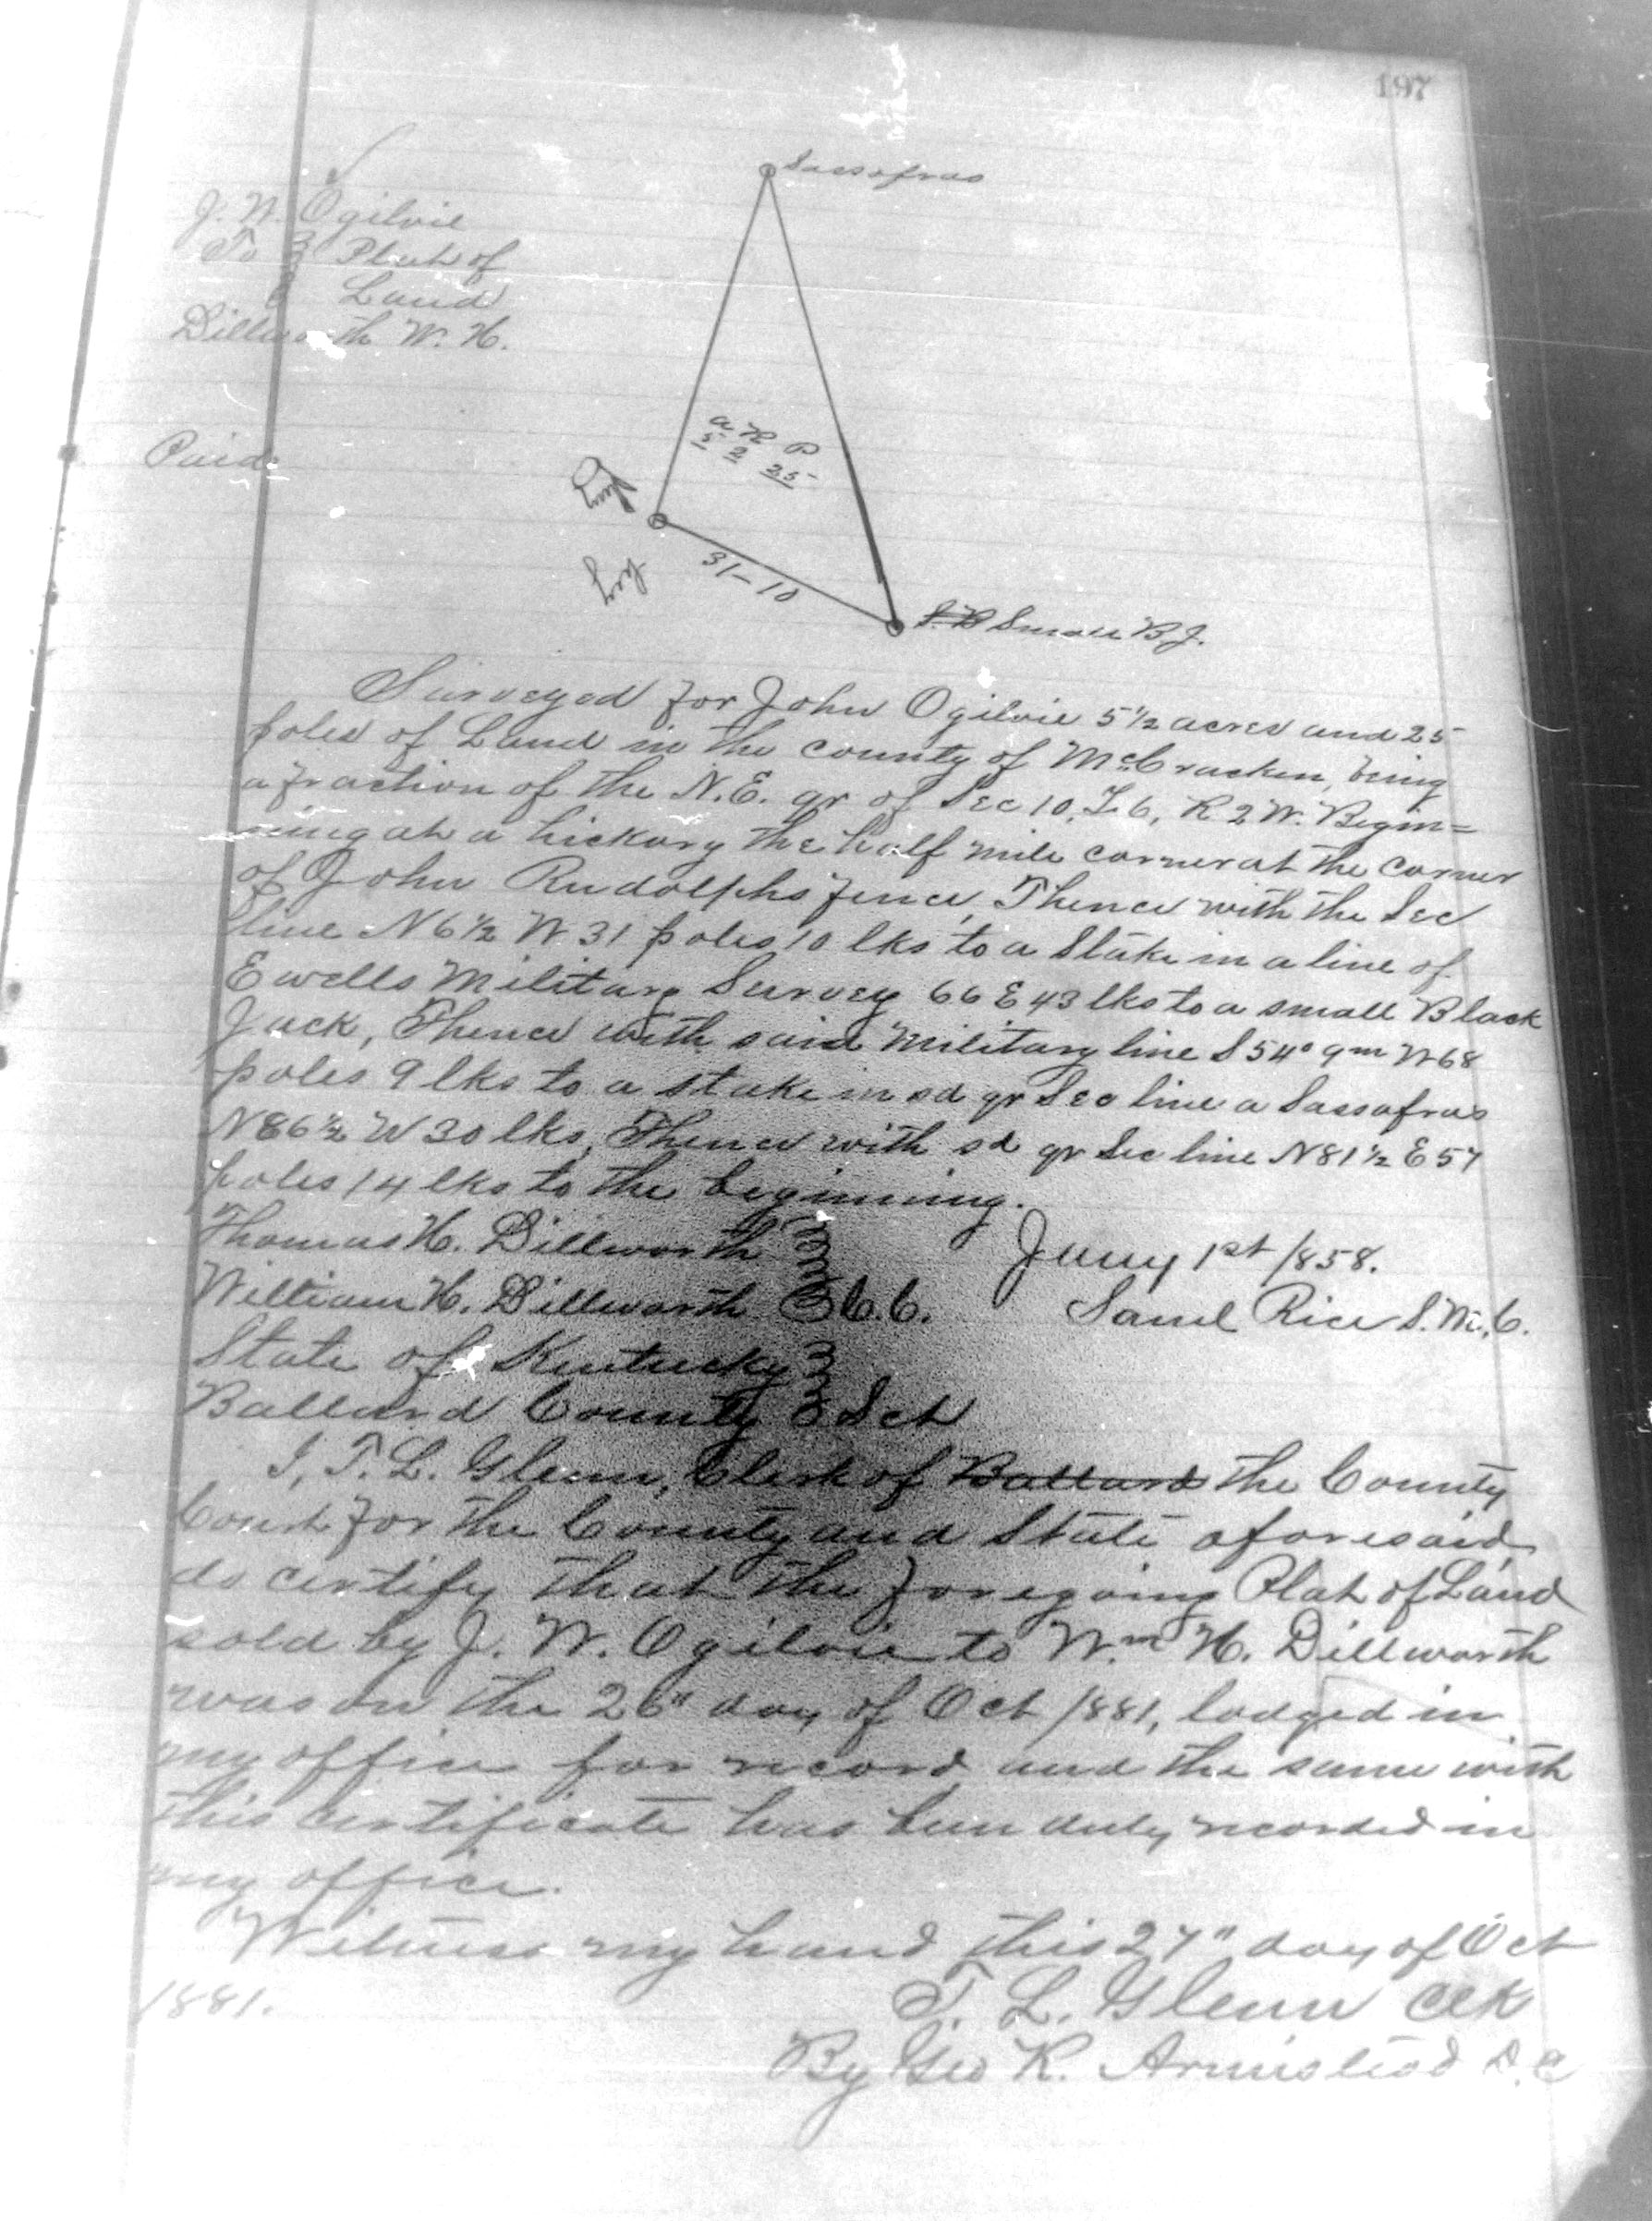 197
Sassafras
J. W. Ogilvie
To } Plat of
} Land
Dillworth W. H.
Paid
a R P
5 2 25
31-10
S. B Small B.J.
Surveyed for John Ogilvie 5 1/2 acres and 25
poles of Land in the county of McCracken, being
a fraction of the N.E. qr of Sec 10, T. 6, R 2 W. Begin=
ning at a hickory the half mile corner at the corner
of John Rudolphs fence, Thence with the Sec
line N 6 1/2 W. 31 poles 10 lks to a Stake in a line of
Ewells Military Survey 66 E 43 lks to a small Black
Jack, Thence with said Military line S 54° 9m W 68
poles 9 lks to a stake in sd qr Sec line a Sassafras
N 86 1/2 W 30 lks, Thence with sd qr Sec line N 81 1/2 E 57
poles 14 lks to the beginning.
Thomas H. Dillworth }
Jany 1st 1858.
William H. Dillworth } C.C.
Saml Rice S. Mc. C.
State of Kentucky }
Ballard County } Sct
I, T. L. Glenn, Clerk of Ballard the County
Court for the County and State aforesaid,
do certify that the foregoing Plat of Land
sold by J. W. Ogilvie to Wm H. Dillworth
was on the 26" day of Oct 1881, lodged in
my office for record and the same with
this certificate has been duly recorded in
my office.
Witness my hand this 27" day of Oct
1881.
T. L. Glenn Clk
By Geo R. Armistead D.C